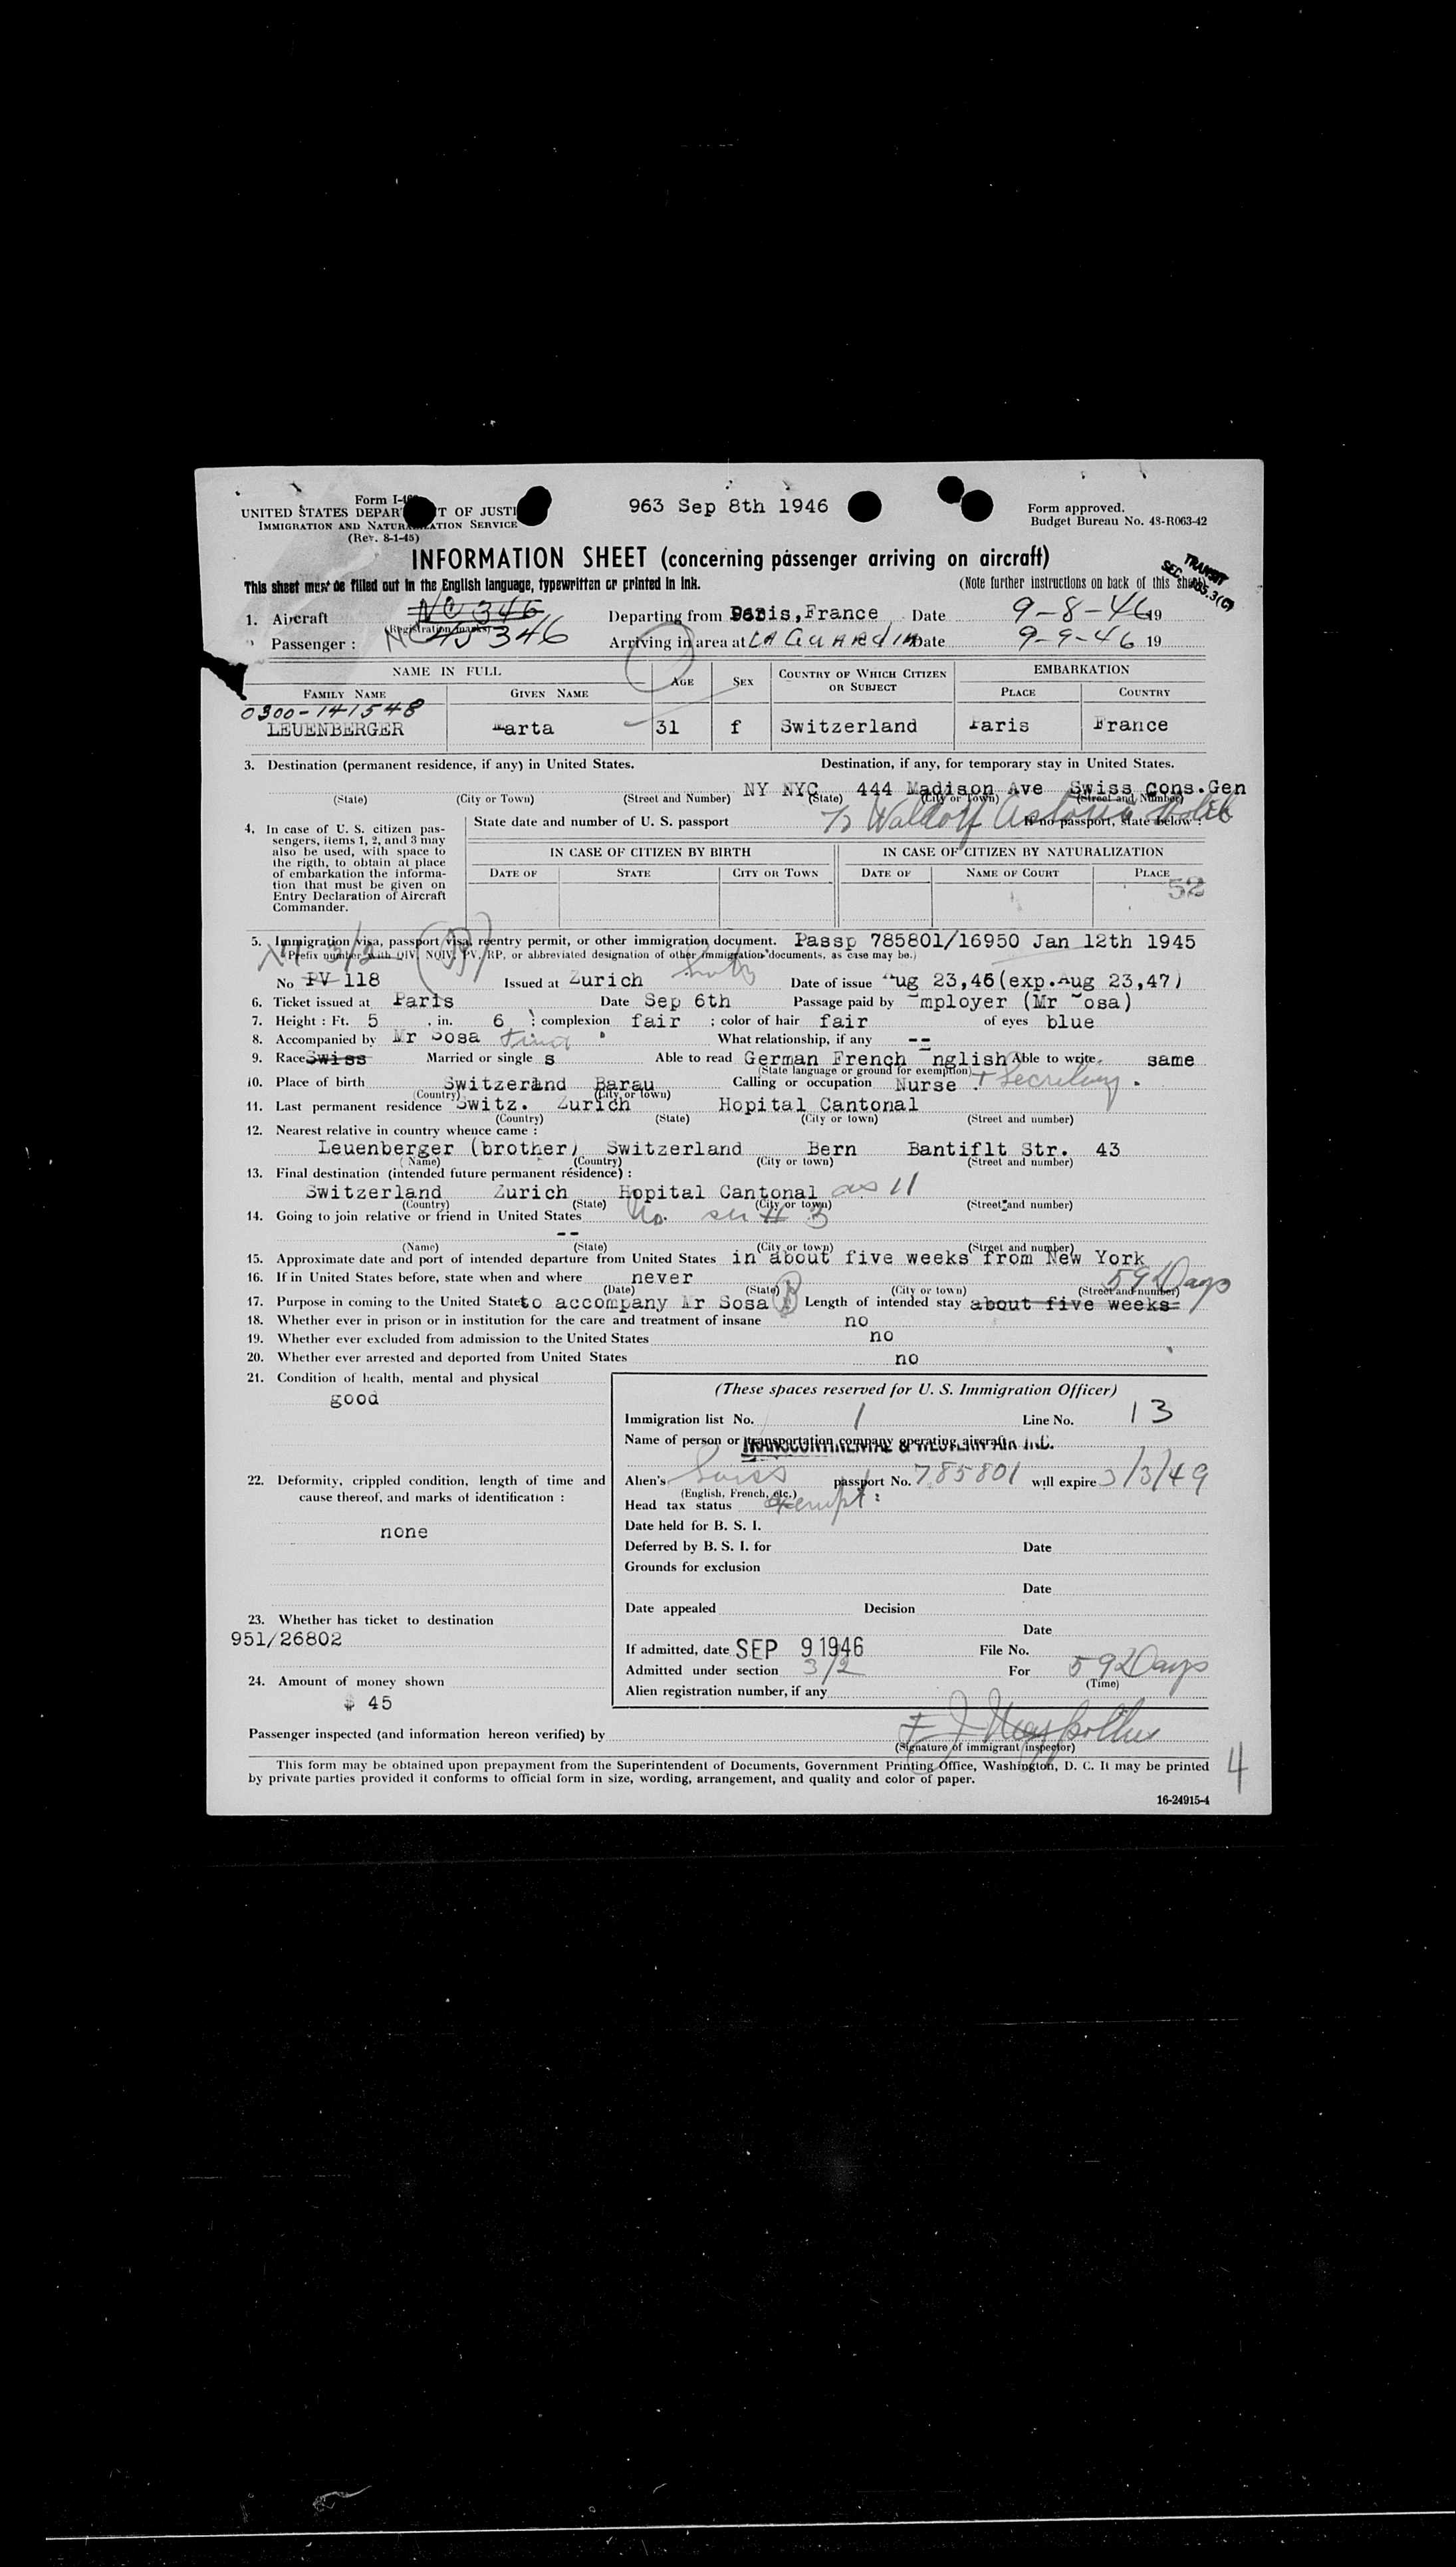 Form I-46
UNITED STATES DEPAR T OF JUSTI
IMMIGRATION AND NATUR ATION SERVICE
(Rev. 8-1-45)
963 Sep 8th 1946
Form approved.
Budget Bureau No. 43-R063-42
INFORMATION SHEET (concerning passenger arriving on aircraft)
TRANSIT
This sheet must be filled out in the English language, typewritten or printed in ink.
(Note further instructions on back of this sheet)
1. Aircraft NC 346 Departing from Paris, France Date 9-8-46 19
(Registration marks)
Passenger : 45346 Arriving in area at LA GUARDIA Date 9-9-46 19
NAME IN FULL AGE SEX COUNTRY OF WHICH CITIZEN OR SUBJECT EMBARKATION
FAMILY NAME GIVEN NAME PLACE COUNTRY
0300-141548
LEUENBERGER arta 31 f Switzerland Paris France
3. Destination (permanent residence, if any) in United States. Destination, if any, for temporary stay in United States.
NY NYC 444 Madison Ave Swiss Cons.Gen
(State) (City or Town) (Street and Number) (State) (City or Town) (Street and Number)
Waldorf Astoria Hotel
4. In case of U. S. citizen passengers, items 1, 2, and 3 may also be used, with space to the rigth, to obtain at place of embarkation the information that must be given on Entry Declaration of Aircraft Commander.
State date and number of U. S. passport If no passport, state below :
IN CASE OF CITIZEN BY BIRTH IN CASE OF CITIZEN BY NATURALIZATION
DATE OF STATE CITY OR TOWN DATE OF NAME OF COURT PLACE
52
5. Immigration visa, passport visa, reentry permit, or other immigration document. Passp 785801/16950 Jan 12th 1945
(Prefix number with QIV, NQIV, PV, RP, or abbreviated designation of other immigration documents, as case may be.)
3/2
No PV 118 Issued at Zurich Date of issue Aug 23,46(exp.Aug 23,47)
6. Ticket issued at Paris Date Sep 6th Passage paid by mployer (Mr Sosa)
7. Height : Ft. 5 , in. 6 ; complexion fair ; color of hair fair of eyes blue
8. Accompanied by Mr Sosa What relationship, if any --
9. Race Swiss Married or single s Able to read German French nglish Able to write same
(State language or ground for exemption)
10. Place of birth Switzerlnd Barau Calling or occupation Nurse + Secretary
(Country) (City or town)
11. Last permanent residence Switz. Zurich Hopital Cantonal
(Country) (State) (City or town) (Street and number)
12. Nearest relative in country whence came :
Leuenberger (brother) Switzerland Bern Bantiflt Str. 43
(Name) (Country) (City or town) (Street and number)
13. Final destination (intended future permanent résidence) :
Switzerland Zurich Hopital Cantonal as 11
(Country) (State) (City or town) (Street and number)
14. Going to join relative or friend in United States No. see # 3
--
(Name) (State) (City or town) (Street and number)
15. Approximate date and port of intended departure from United States in about five weeks from New York
16. If in United States before, state when and where never
59 Days
(Date) (State) (City or town) (Street and number)
17. Purpose in coming to the United States to accompany Mr Sosa Length of intended stay about five weeks
18. Whether ever in prison or in institution for the care and treatment of insane no
19. Whether ever excluded from admission to the United States no
20. Whether ever arrested and deported from United States no
21. Condition of health, mental and physical
good
(These spaces reserved for U. S. Immigration Officer)
Immigration list No. 1 Line No. 13
Name of person or transportation company operating aircraft TRANSCONTINENTAL & WESTERN AIR INC.
22. Deformity, crippled condition, length of time and cause thereof, and marks of identification :
none
Alien's Swiss passport No. 785801 will expire 3/3/49
(English, French, etc.)
Head tax status exempt
Date held for B. S. I.
Deferred by B. S. I. for Date
Grounds for exclusion
Date
Date appealed Decision
Date
23. Whether has ticket to destination
951/26802
If admitted, date SEP 9 1946 File No.
Admitted under section 3/2 For 59 Days
(Time)
Alien registration number, if any
24. Amount of money shown
$ 45
Passenger inspected (and information hereon verified) by
(Signature of immigrant inspector)
This form may be obtained upon prepayment from the Superintendent of Documents, Government Printing Office, Washington, D. C. It may be printed
by private parties provided it conforms to official form in size, wording, arrangement, and quality and color of paper.
4
16-24915-4